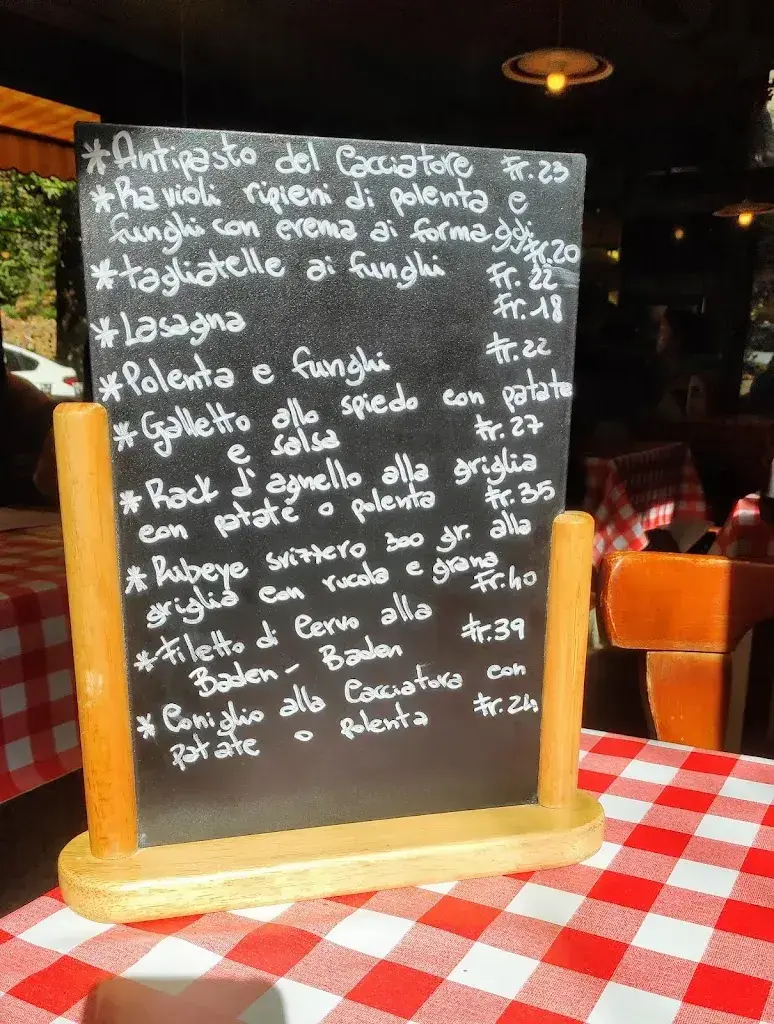 *Antipasto del Cacciatore Fr.23
*Ravioli ripieni di polenta e
funghi con crema ai formaggi Fr.20
*tagliatelle ai funghi Fr.22
*Lasagna Fr.18
*Polenta e funghi Fr.22
*Galletto allo spiedo con patate
e salsa Fr.27
*Rack d'agnello alla griglia
con patate o polenta Fr.35
*Rubeye svizzero 300 gr. alla
griglia con rucola e grana
Fr.40
*Filetto di Cervo alla
Baden-Baden Fr.39
*Coniglio alla Cacciatora con
patate o polenta Fr.24